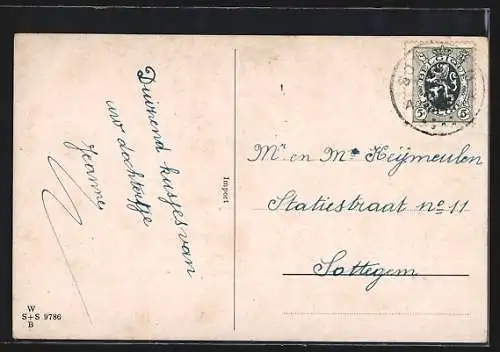 Duizend kusjes van
uw dochtertje
Jeanne
Import
BELGIQUE
5 5
Mr en Me Heijmeulen
Statiestraat no 11
Sottegem
W
S+S 9786
B